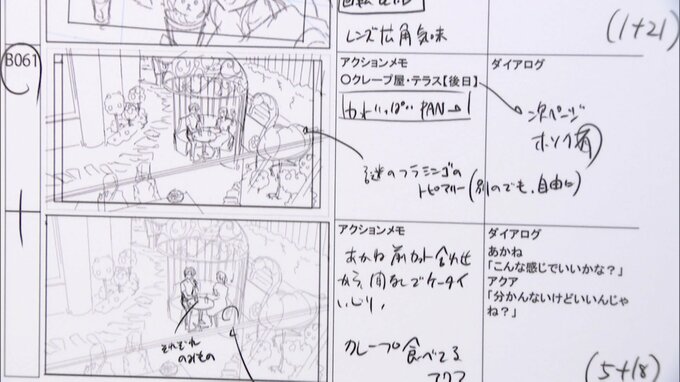 レンズ広角気味
(1+21)
B061
アクションメモ
○クレープ屋・テラス【後日】
カメいっぱい PAN
ダイアログ
次ページ
ホリ介有
謎のフラミンゴの
トピアリー(別のでも、自由に)
アクションメモ
あかね前カット合わせ
から、間なしでケータイ
いじり。
クレープ食べてる
アクア
それぞれ
のみもの
ダイアログ
あかね
「こんな感じでいいかな?」
アクア
「分かんないけどいいんじゃ
ね?」
(5+18)